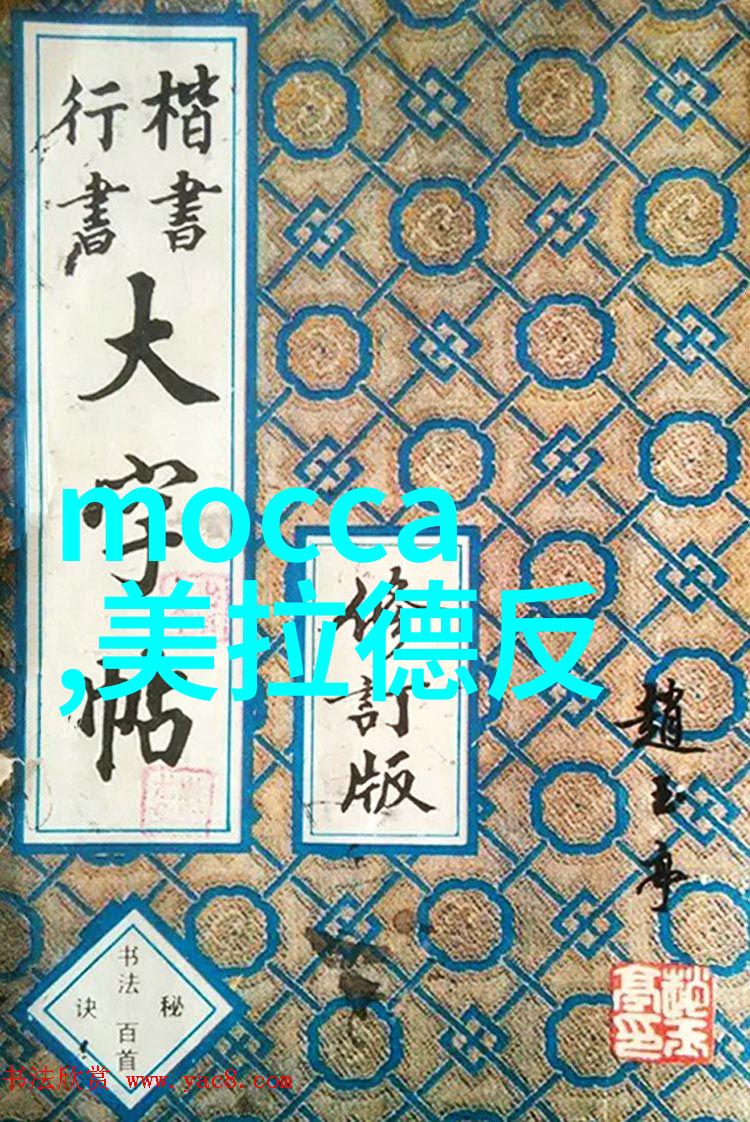 楷書
行書
大字帖
修訂版
趙玉亭
书法百首
秘诀
mocca
,美拉德反
书法欣赏 www.yac8.com